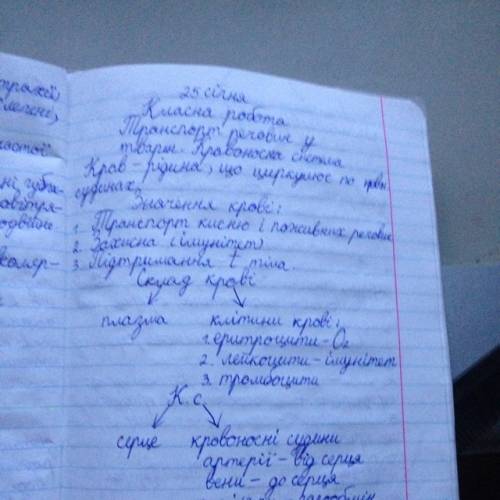 25 січня
Класна робота
Транспорт речовин у
тварин. Кровоносна система
Кров - рідина, що циркулює по
судинах.
Значення крові:
1. Транспорт кисню і поживних речовин
2. Захисна (імунітет)
3. Підтримання t тіла.
Склад крові
плазма клітини крові:
1. еритроцити - O₂
2. лейкоцити - імунітет
3. тромбоцити
К. с.
серце кровоносні судини
артерії - від серця
вени - до серця